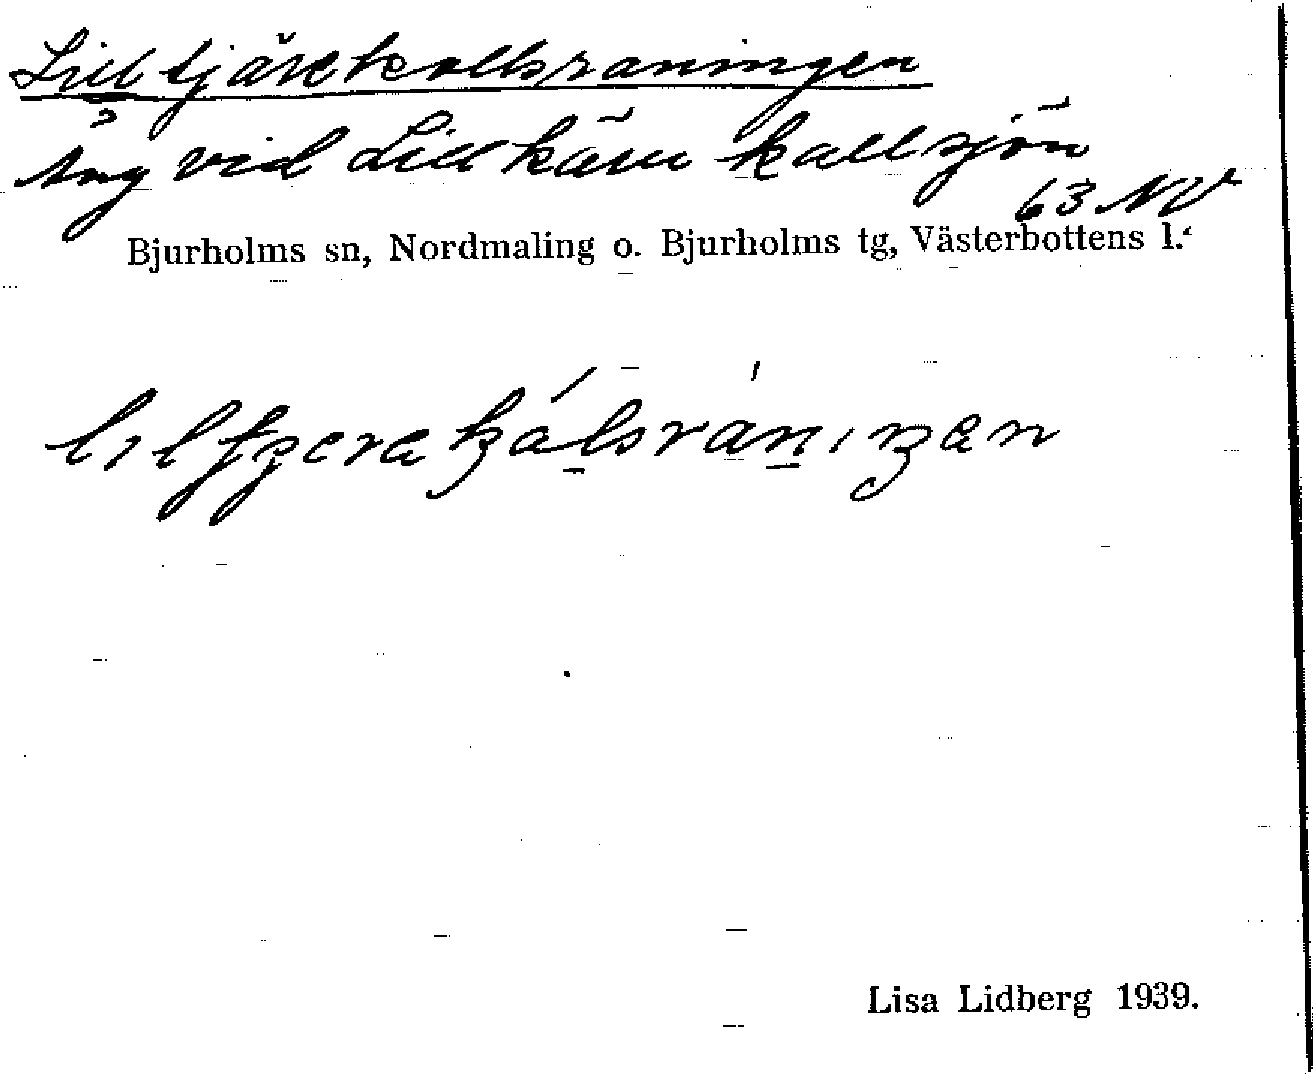 Lilltjärekallsraningen
Äng vid Lillkäru kallsjön
63 NV
Bjurholms sn, Nordmaling o. Bjurholms tg, Västerbottens l.
Lisa Lidberg 1939.